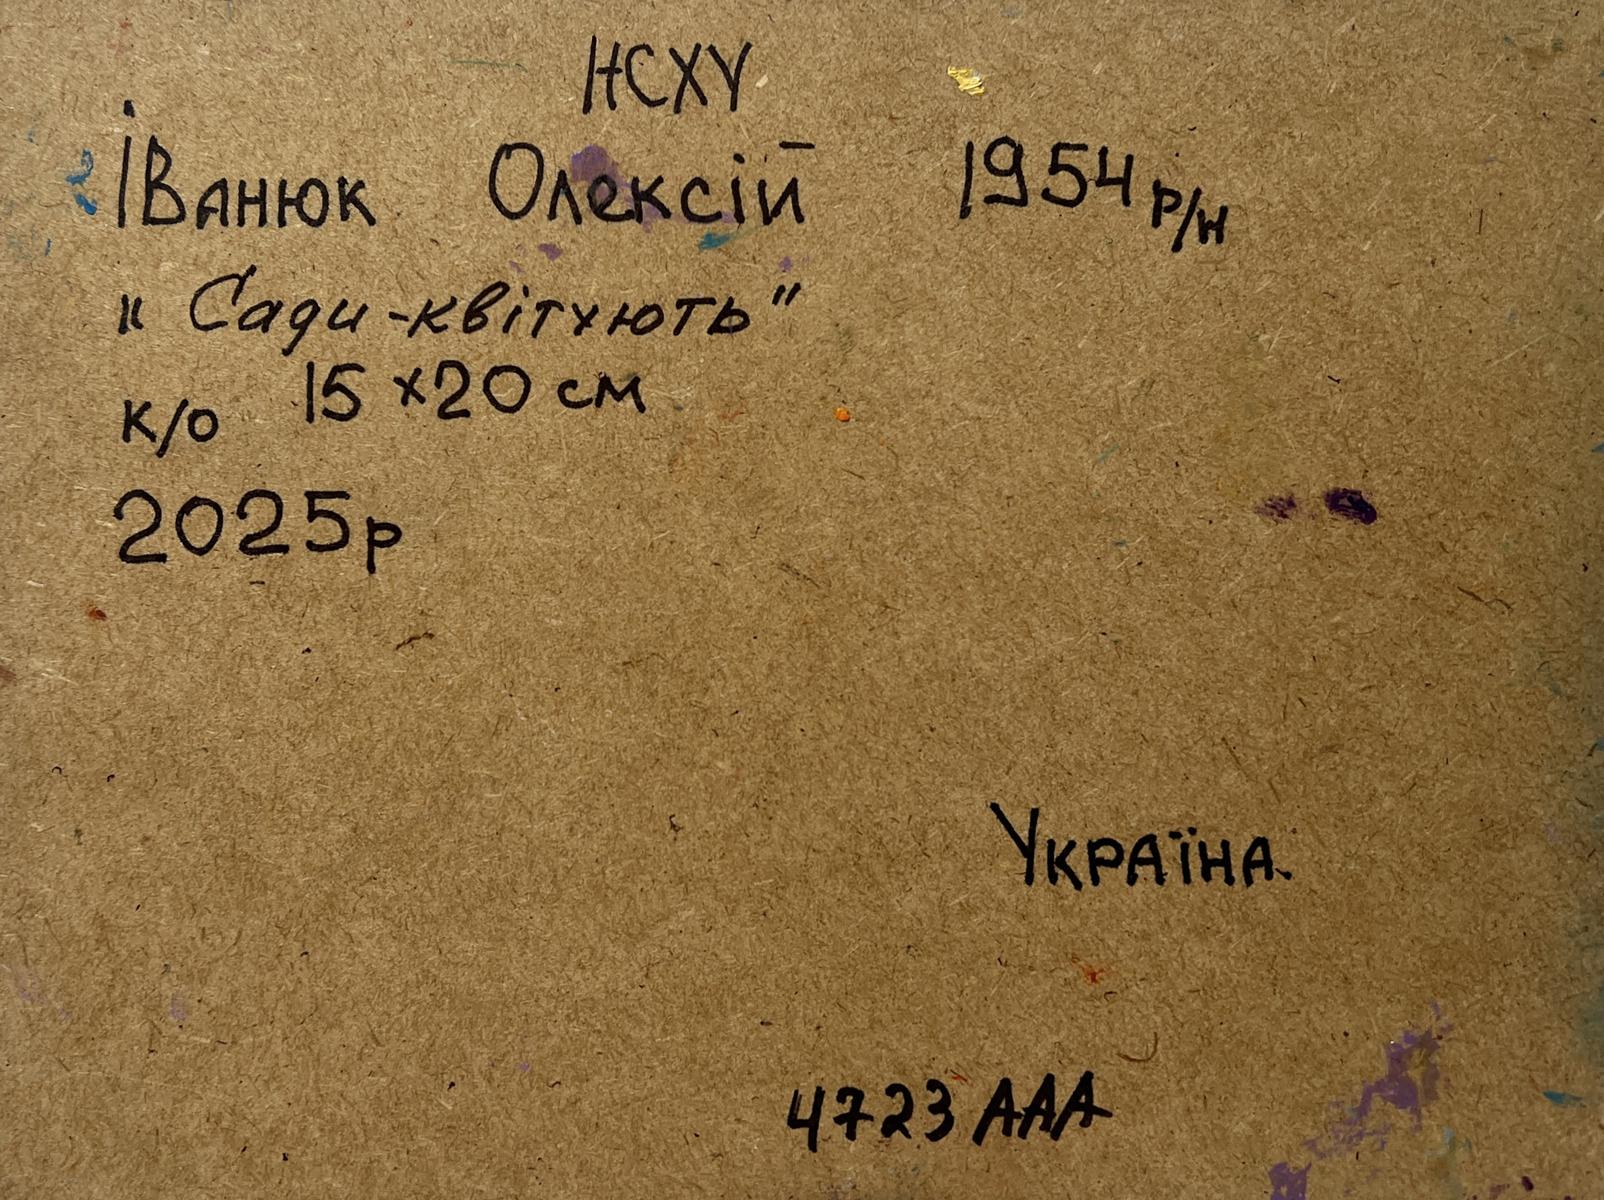 НСХУ
Іванюк Олексій 1954 р/н
"Сади-квітують"
к/о 15х20 см
2025р
Україна.
4723 ААА